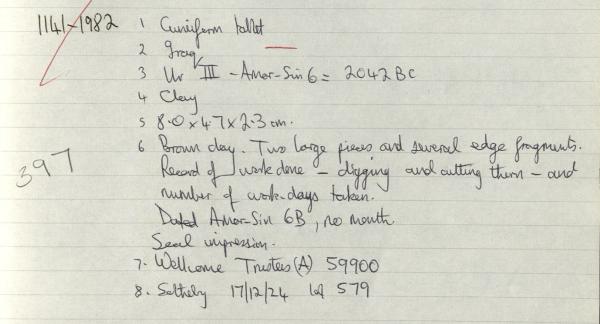 1141-1982 1 Cuneiform tablet
2 Iraq
3 Ur III - Amar-Sin 6 = 2042 BC
4 Clay
5 8.0 x 4.7 x 2.3 cm.
6 Brown clay. Two large pieces and several edge fragments.
397 Record of work done - digging and cutting thorn - and
number of work-days taken.
Dated Amar-Sin 6B, no month.
Seal impression.
7. Wellcome Trustees (A) 59900
8. Sotheby 17/12/24 lot 579